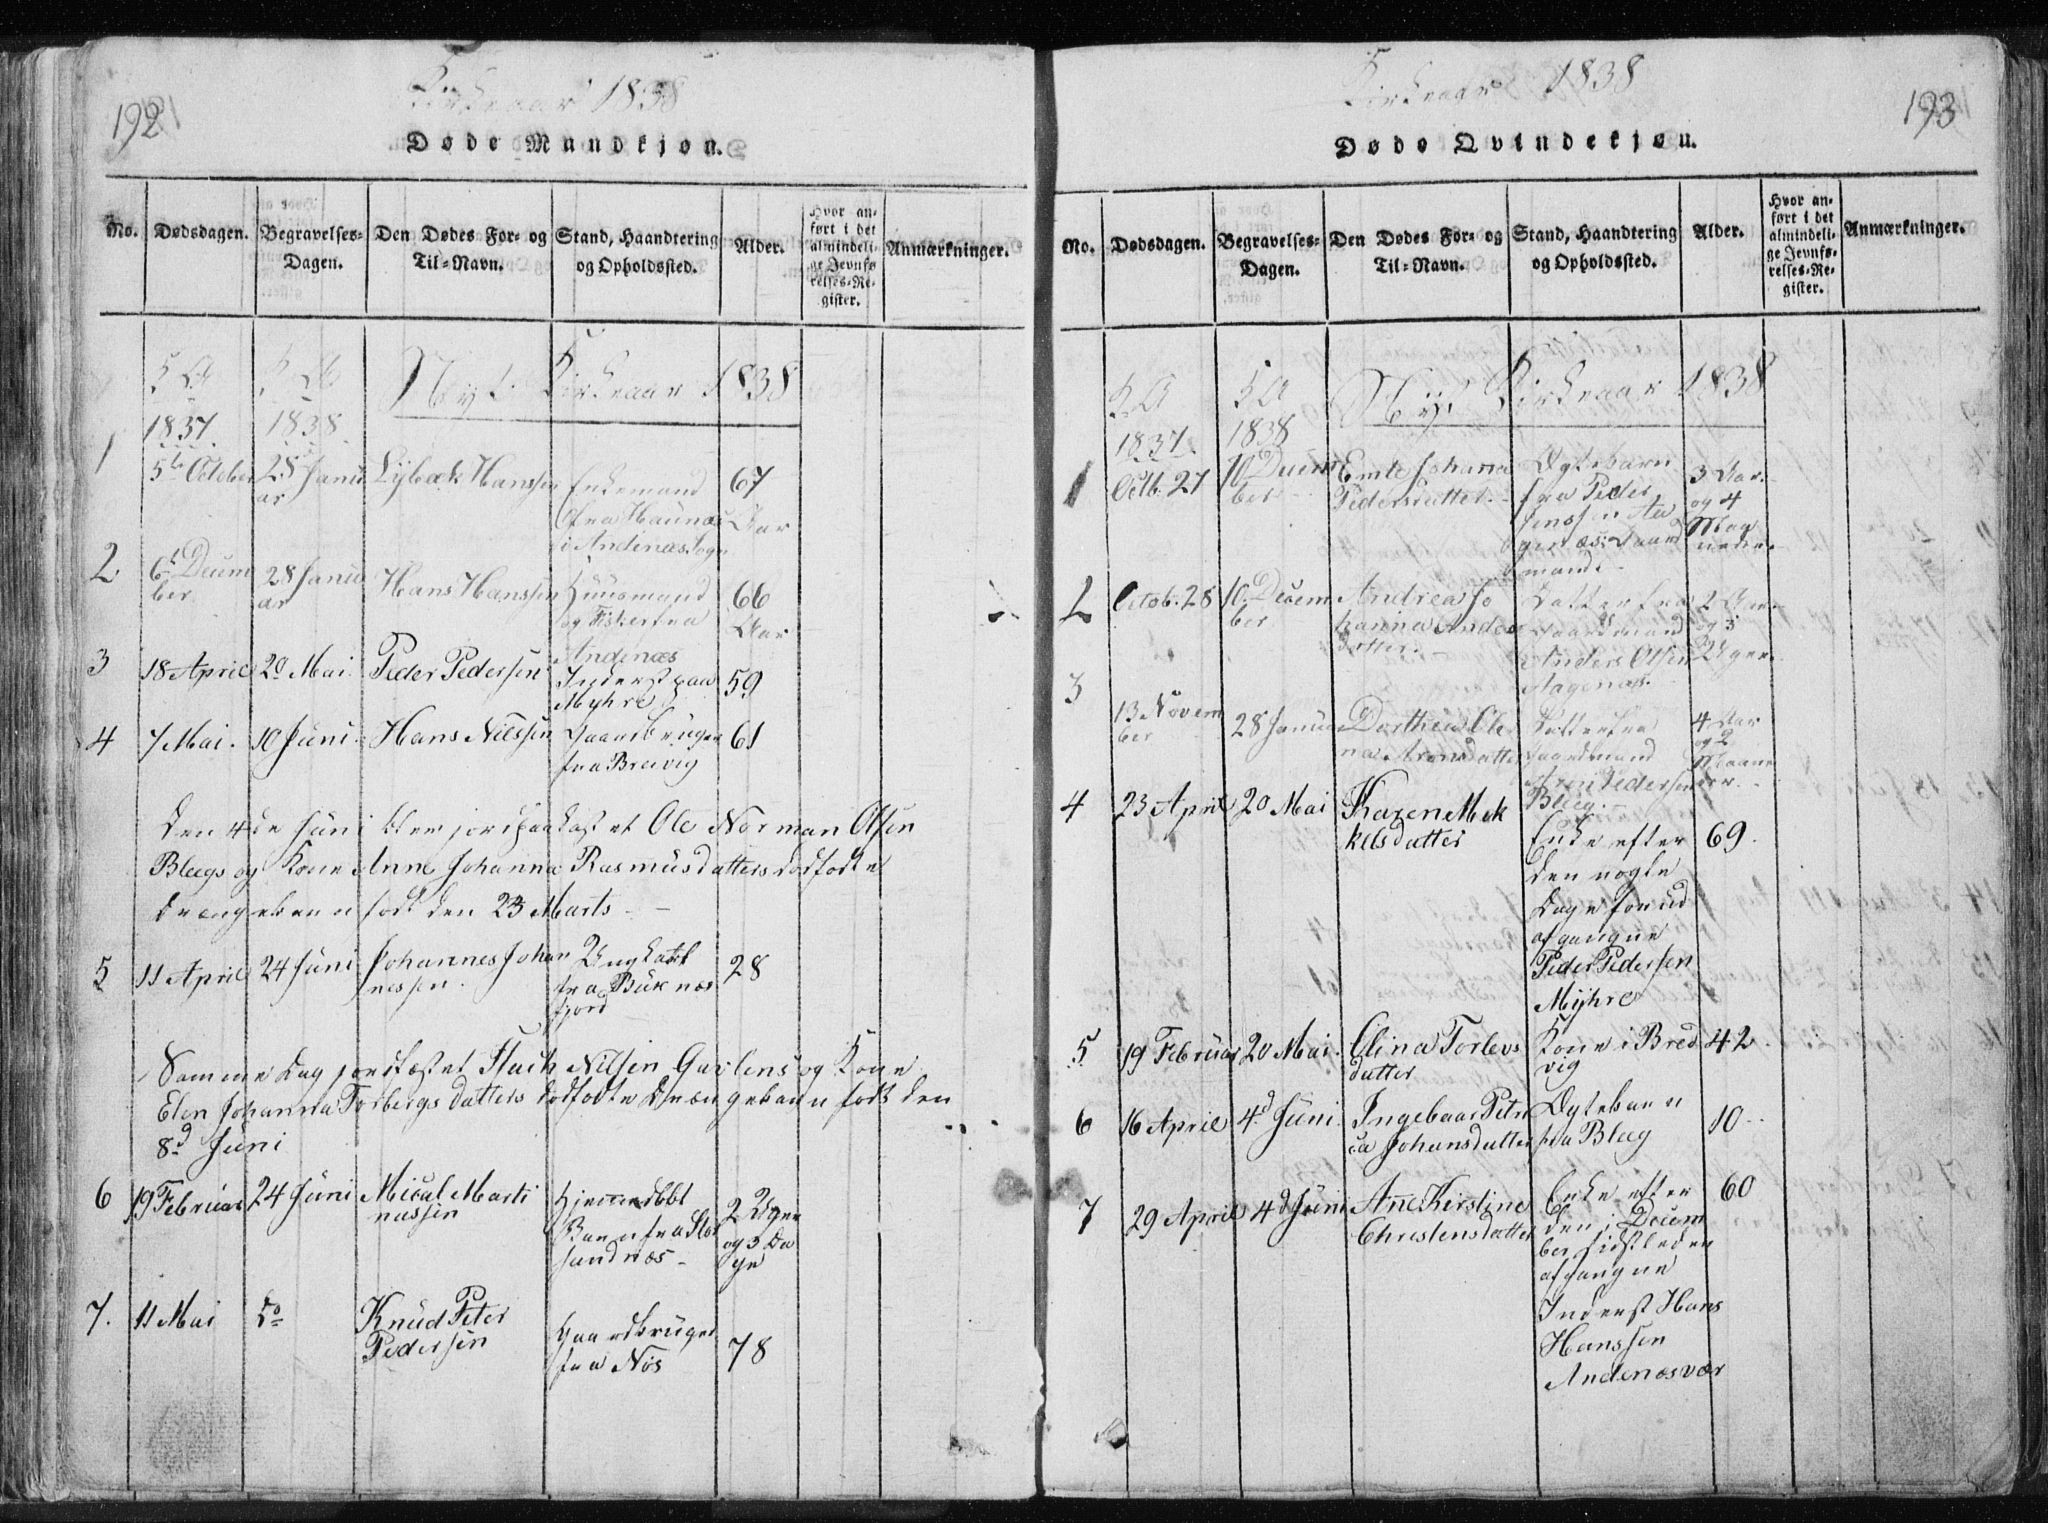 192
Kirkeaar 1838
Døde Mandkjøn.
No.
Dødsdagen.
Begravelses-
Dagen.
Den Dødes For- og
Til-Navn.
Stand, Haandtering
og Opholdssted.
Alder.
Hvor an-
ført i det
almindeli-
ge Jevnfø-
relses-Re-
gister.
Anmærkninger.
Nyt Kirkeaar 1838
1837. 1838.
1
5te October
28 Janu
ar
Lybæk Hanssen
Enkemand
fra Haunæs
i Andenæs Sogn
67
Aar
2
6t Decem
ber
28 Janu
ar
Hans Hanssen
Huusmand
og Fisker fra
Andenæs
66
Aar
3
18 April
20 Mai
Peder Pedersen
Inderst paa
Myhre
59
4
7 Mai.
10 Juni.
Hans Nilssen
Gaardbruger
fra Breivig
61
Den 4de Juni blev jordpaakastet Ole Norman Olsen
Bleegs og Kone Anne Johanna Rasmusdatters dødfødte
Drængebarn født den 23 Marts
5
11 April
24 Juni
Johannes Johan
nessen.
Ungkarl
fra Buknæs
fjord
28
Samme Dag jordfæstet Nilsen og Kone
Elen Johanna Torbergsdatters dødfødte Drængebarn født den
8d Juni
6
19 Februar
24 Juni
Micul Marti
nussen
Hjemmedøbt
Barn fra Stor
sandnæs
2 Uger
og 3 Da
ge
7.
11 Mai
Do
Knud Peter
Pedersen
Gaardbruger
fra Nøs
78
193
Kirkeaar 1838
Døde Qvindekjøn.
No.
Dødsdagen.
Begravelses-
Dagen.
Den Dødes For- og
Til-Navn.
Stand, Haandtering
og Opholdssted.
Alder.
Hvor an-
ført i det
almindeli-
ge Jevnfø-
relses-Re-
gister.
Anmærkninger.
Nyt Kirkeaar 1838
1837. 1838
1
Octb. 27
10 Decem
ber
Emte Johana
Pedersdatter.
Ægtebarn
fra Peder
Jenssen
Gaard
mand
3 Aar
og 4
Maa
neder
2
Octob. 28
10 Decem
ber
Andrea Jo
hanna Anders
datter.
Datter fra
Gaardmand
Anders Olsen
Aagenæs.
2 Aar
og 3
Uger
3
13 Novem
ber
28 Januar
Dorthea Ole
na Aronsdatter
Datter fra
Gaardmand
Aron Pedersen
Bleeg.
4 Aar
og 2
Maane
der
4
23 April
20 Mai
Karen Mek
kelsdatter
Enke efter
den nogle
Dage forud
afgangne
Peder Pedersen
Myhre
69.
5
19 Februar
20 Mai.
Elina Torlevs
datter
Kone i Bred
vig
42.
6
16 April
4d Juni.
Ingebaar Petri
ca Johansdatter
Ægtebarn
fra Bleeg
10
7
29 April
4d Juni
Ane Kirstine
Christensdatter
Enke efter
den i Decem
ber sidstleden
afgangne
Inderst Hans
Hanssen
Andenæsvær
60